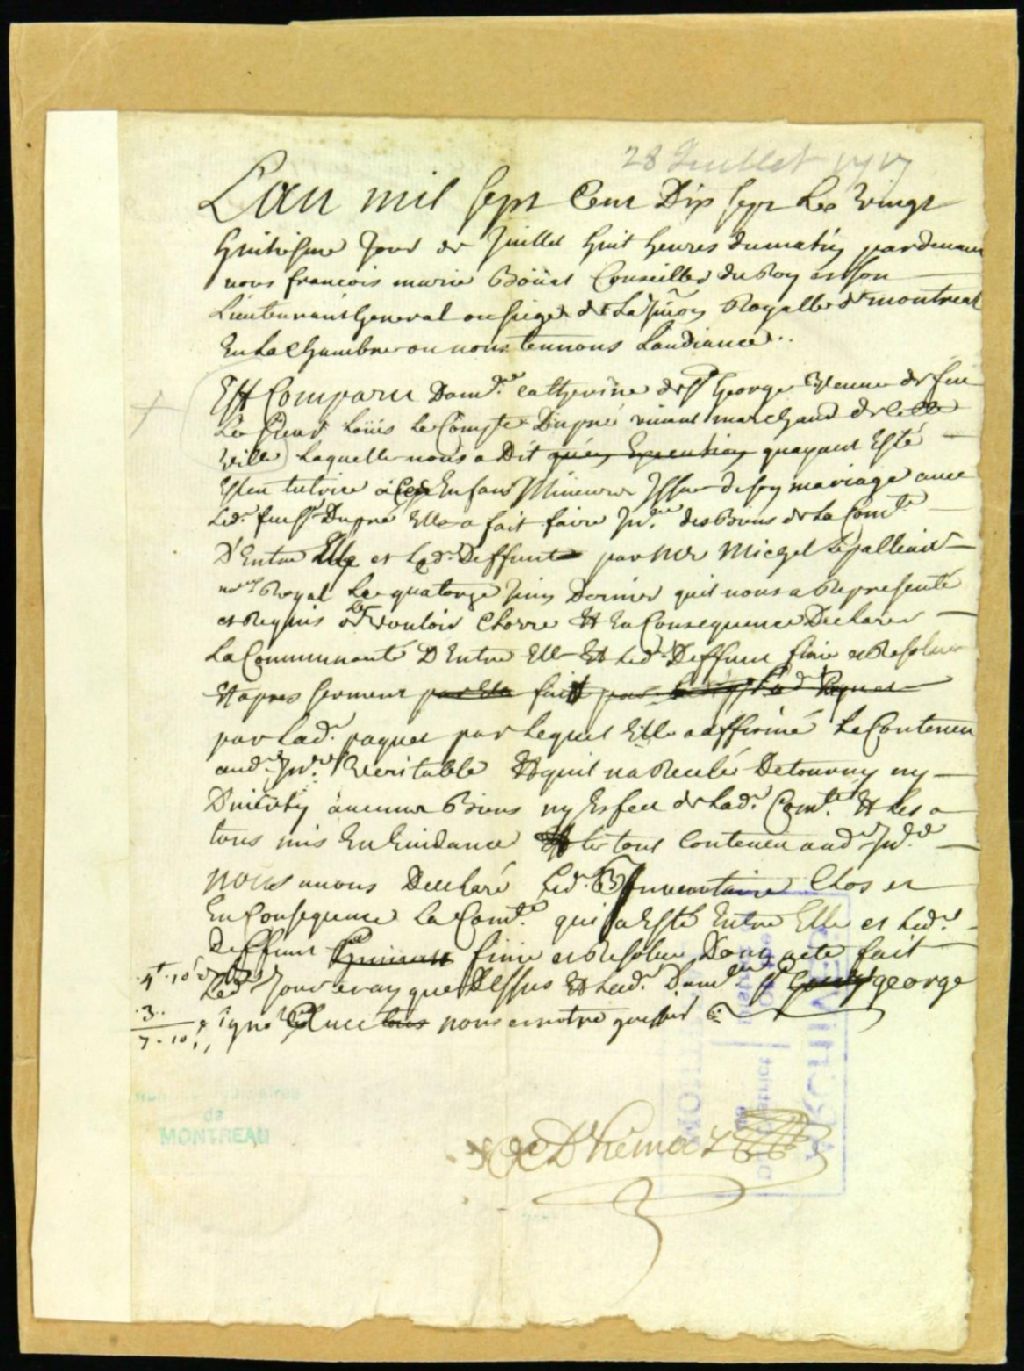 28 Juillet 1717
L'an mil sept Cent Dix sept Le Vingt
huitiesme Jour de Juillet huit heures du matin pardevant
nous francois marie Boüat Conseiller du Roy et son
Lieutenant General au siege de la Juron Royalle de montreal
En La Chambre ou nous tennons Laudiance..
Est Comparu Dam.le Catherine de St George veuve de feu
Le Sieur Loüis Le Compte Dupré vivant marchand de cette
Ville Laquelle nous a Dit quen Execution quayant Esté
Eslеu tutrice a Ces Enfans Mineurs Issus de son mariage avec
Led. feu Sr Dupré Elle a fait faire Inv.re des Biens de La Com.té
D'Entre Elle et Led. Deffunt par Me Michel Lepallieur
no.re Royal Le quatorze Juin Dernier quil nous a Representé
et Requis de Vouloir Clorre Et En Consequence Declarer
La Communauté D Entre Elle Et Led. Deffunt finie et Resolue
Et apres serment par Elle fait par Lad.
par Lad. paquet par Lequel Elle a affirmé Le Contenu
aud. Inv.re Veritable Et quil na Recelé Detourny ny
Diverty aucuns Biens ny Effets de Lad. Com.té Et Les a
tous mis En Evidance Et Le tout Contenu aud. Inv.re
nous avons Declaré Led. Inventaire Clos et
En Consequence La Com.té qui a Esté Entre Elle et Led.
Deffunt finie et Resolue Dont acte fait
Led. Jour et an que Dessus Et Lad. Dam.le St george
signé avec nous et notre greffier
4# 10s
3.
7. 10
de
MONTREAL